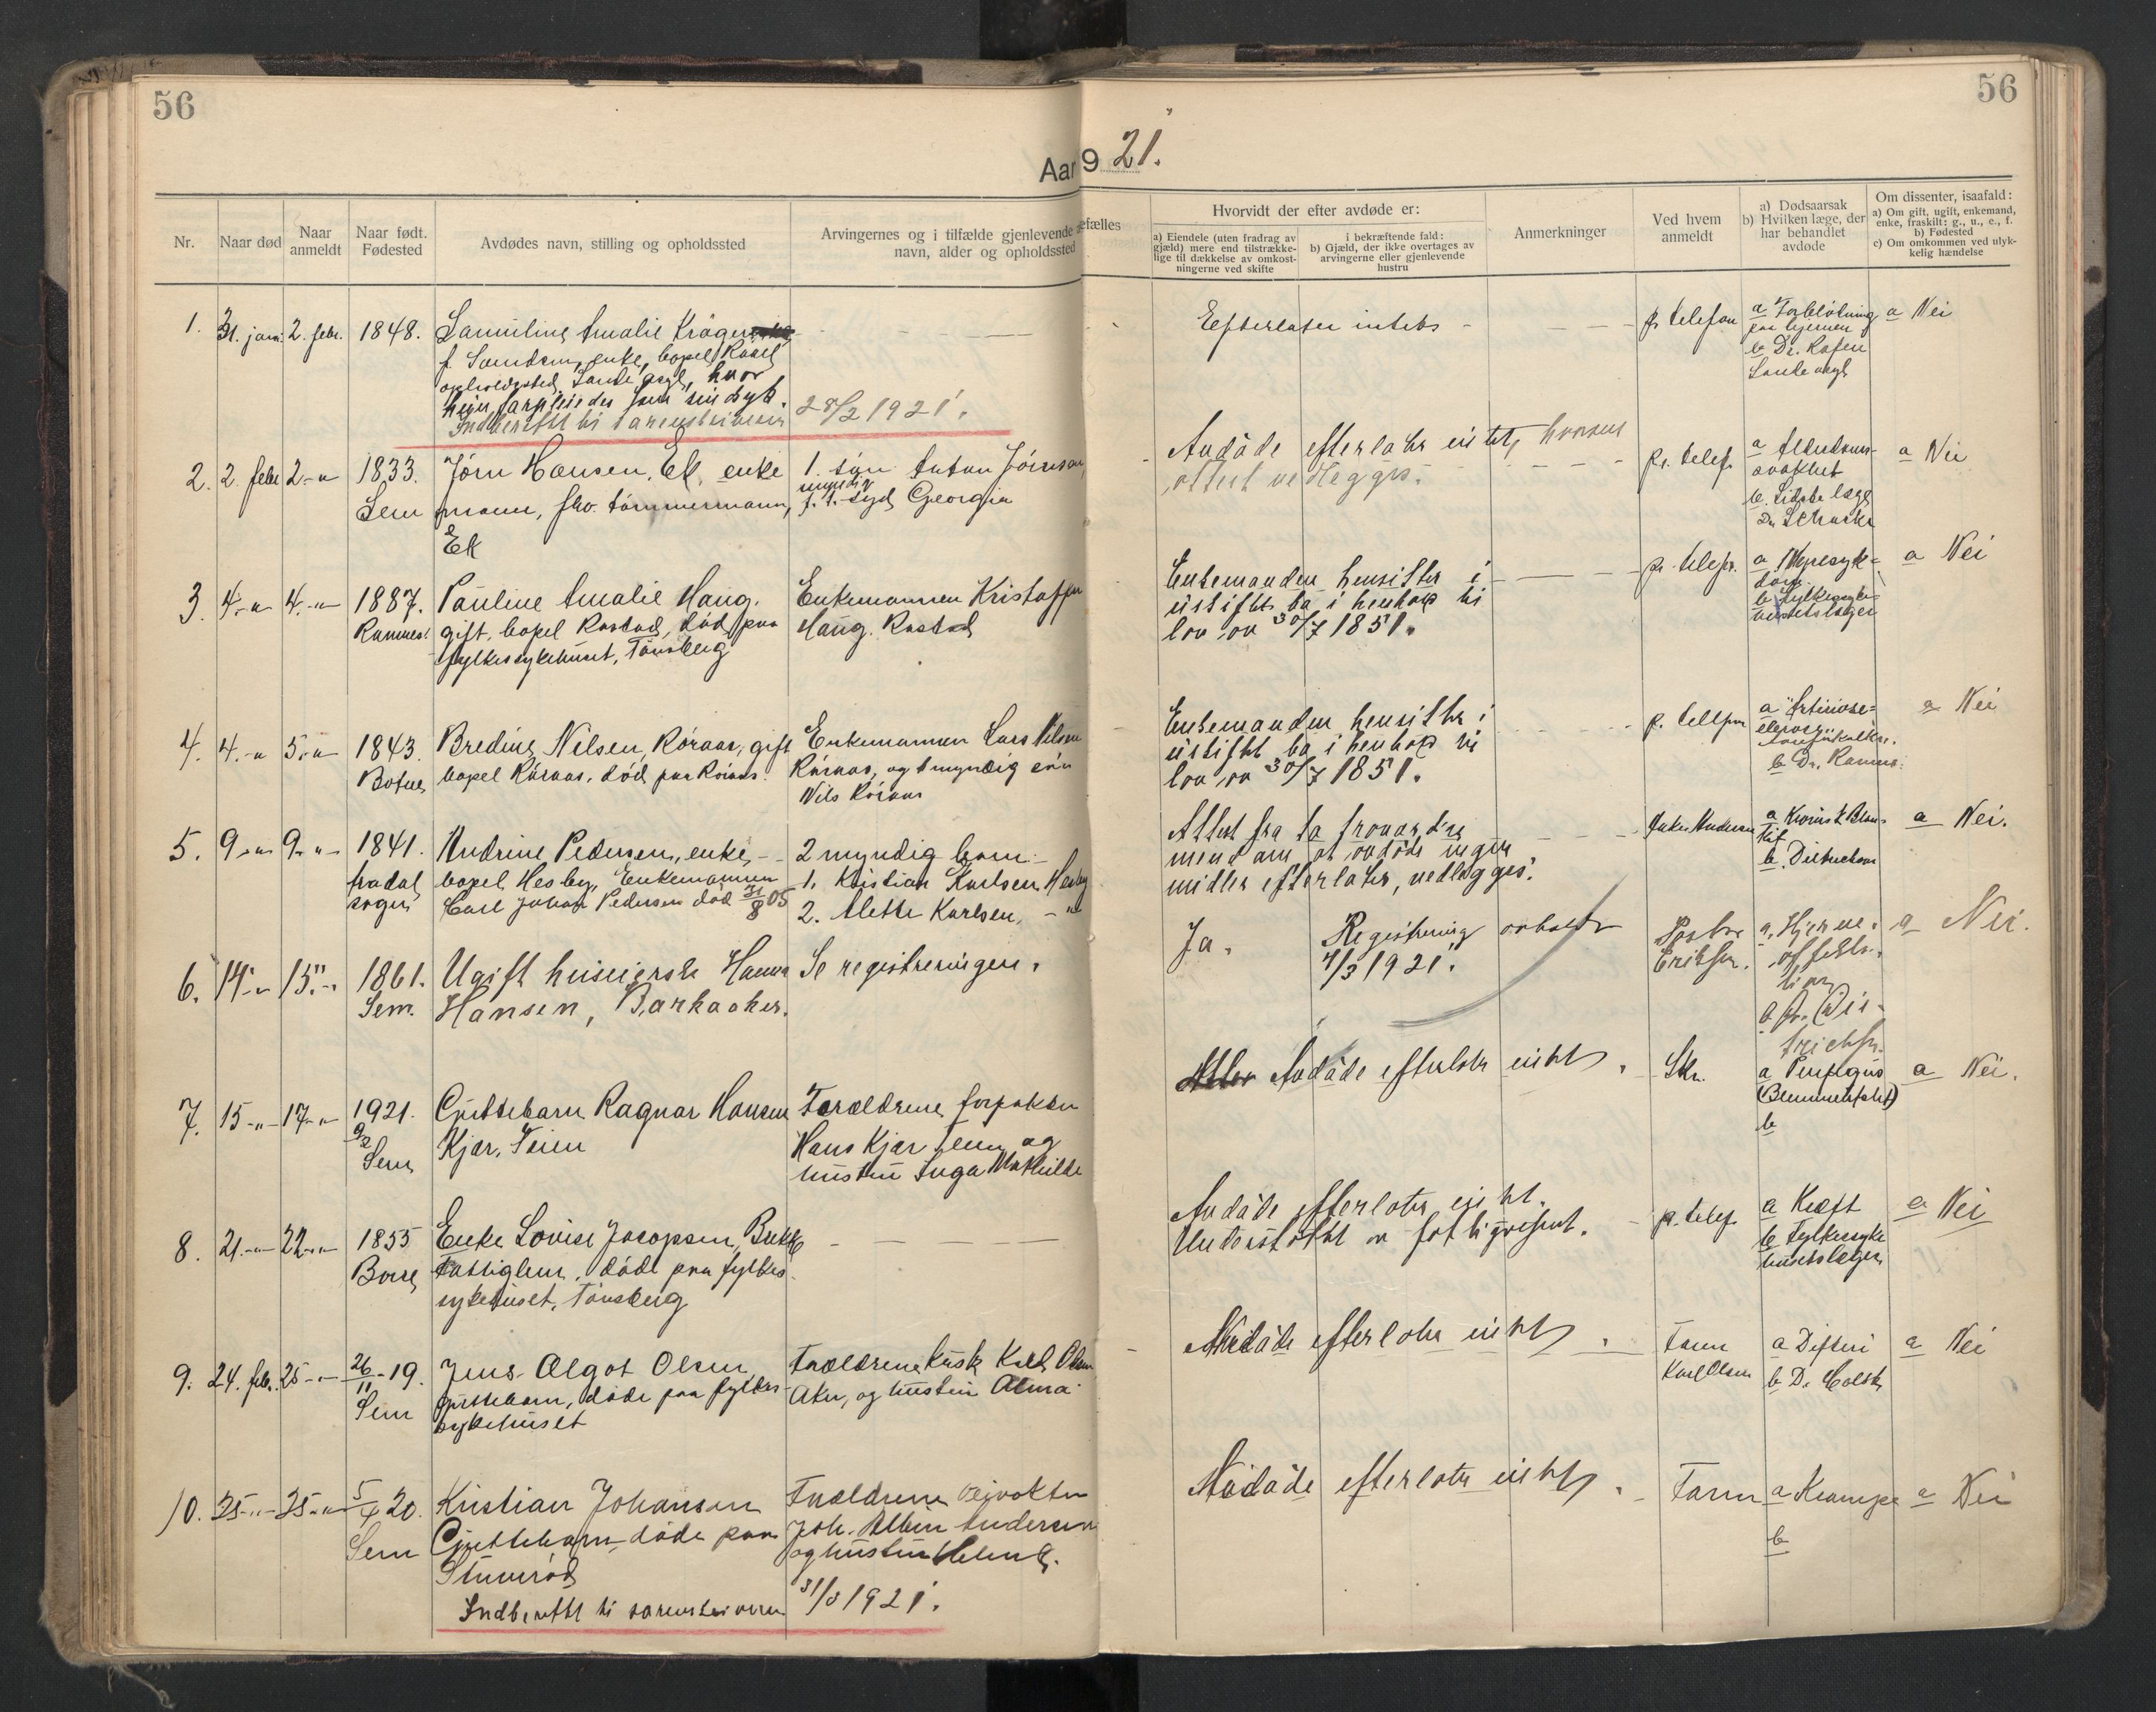 56
56
Aar 19 21.
Nr.
Naar død
Naar anmeldt
Naar født. Fødested
Avdødes navn, stilling og opholdssted
Arvingernes og i tilfælde gjenlevende
navn, alder og opholdssted
Hvorvidt der efter avdøde er:
a) Eiendele (uten fradrag av
gjæld) mere end tilstrække-
lige til dækkelse av omkost-
ningerne ved skifte
i bekræftende fald:
b) Gjæld, der ikke overtages av
arvingerne eller gjenlevende
hustru
Anmerkninger
Ved hvem
anmeldt
a) Dødsaarsak
b) Hvilken læge, der
har behandlet
avdøde
Om dissenter, isaafald:
a) Om gift, ugift, enkemand,
enke, fraskilt: g., u., e., f.
b) Fødested
c) Om omkommen ved ulyk-
kelig hændelse
1. 31. jan. 2. febr. 1848.
enke, bopel
28/2 1921.
Efterlater intet
pr. telefon
a
b Dr.
a Nei
2. 2. febr 2-"- 1833.
Sem
Jørn Hansen, Ek, enke
mann, fhv. tømmermann,
Ek
1. søn Anton
myndig
f. t. Syd Georgia
Avdøde efterlater intet,
attest vedlegges.
pr. telef.
a Alderdoms-
svakhet
a Nei
3. 4-"- 4-"- 1887.
Ramnes
Pauline Amalie Haug.
gift, bopel Rastad, død paa
fylkessykehuset, Tønsberg
Enkemannen Kristoffer
Haug. Rastad
Enkemanden hensitter i
uskiftet bo i henhold til
lov av 30/7 1851.
pr. telefon
a Nei
4. 4-"- 5-"- 1843
Botne
Bredine Nilsen, Røraas, gift
bopel Røraas, død paa Røraas.
Enkemannen Lars Nilsen
Røraas, og 1 myndig søn
Nils Røraas
Enkemanden hensitter i
uskiftet bo i henhold til
lov av 30/7 1851.
p. telefon
b Dr.
a Nei
5. 9-"- 9-"- 1841.
Andrine Pedersen, enke,
bopel Hesby, Enkemannen
Carl Johan Pedersen død 31/8 05
2 myndig barn
1. Kristian Karlsen Hesby
2. Alette Karlsen, -"-
Attest fra to troværdige
mend om at avdøde ingen
midler efterlater, vedlegges.
a Nei.
6. 14-"- 15-"- 1861.
Sem.
Ugift huseierske Hanna
Hansen, Barkaaker.
Se registreringen.
Ja.
Registrering avholdt
4/3 1921.
Pastor
Eriksen.
a Nei.
7. 15-"- 17-"- 1921.
9/2
Sem
Guttebarn Ragnar Hansen
Kjær,
Forældrene forpakter
Hans Kjær og
hustru Inga Mathilde
Avdøde efterlater intet.
Skr.
a Pemfigus
b
a Nei.
8. 21-"- 22-"- 1855
Borre
Enke Lovise Jacopsen,
Fattiglem, døde paa fylkes-
sykehuset, Tønsberg
Avdøde efterlater intet.
Understøttet av fattigvesenet.
pr. telef.
a Kræft
b Fylkessyke
husets læger
a Nei
9. 24. febr. 25-"- 26/11-19.
Sem
Jens Ælgot Olsen
Guttebarn, døde paa fylkes-
sykehuset
Forældrene Kusk Karl Olsen
Aker, og hustru Alma
Avdøde efterlater intet.
Faren
Karl Olsen
a Difteri
b Dr. Holst
a Nei
10. 25-"- 25-"- 5/4 20.
Sem
Kristian Johansen
Guttebarn, døde paa
Forældrene
Joh. Albin Andersen
og hustru Helene
Indberettet til sorenskriveren 31/3 1921.
Avdøde efterlater intet.
Faren
a Krampe
b
a Nei